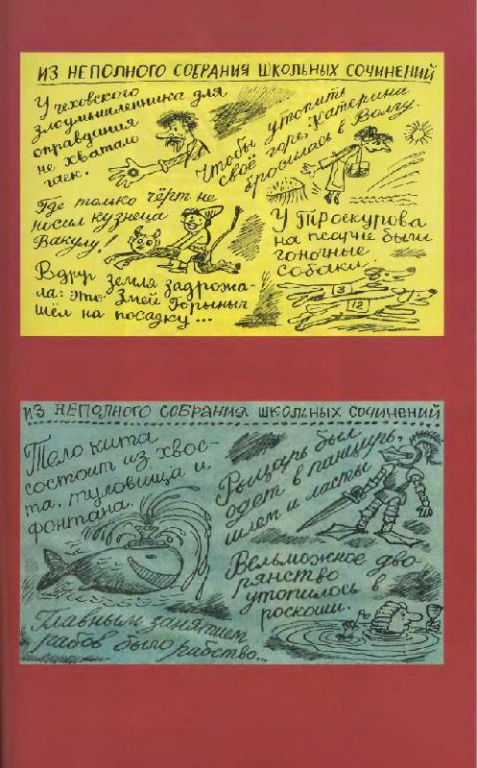 ИЗ НЕПОЛНОГО СОБРАНИЯ ШКОЛЬНЫХ СОЧИНЕНИЙ
У чеховского
злоумышленника для
оправдания
не хватало
гаек.
Чтобы утопить
своё горе, Катерина
бросилась в Волгу.
Где только чёрт не
носил кузнеца
Вакулу!
У Троекурова
на псарне были
гоночные
собаки.
3
12
Вдруг земля задрожа-
ла: это Змей Горыныч
шёл на посадку...
ИЗ НЕПОЛНОГО СОБРАНИЯ ШКОЛЬНЫХ СОЧИНЕНИЙ
Тело кита
состоит из хвос-
та, туловища и
фонтана.
Рыцарь был
одет в панцирь,
шлем и ласты
Вельможное дво-
рянство
утопилось в
роскоши.
Главным занятием
рабов было рабство...